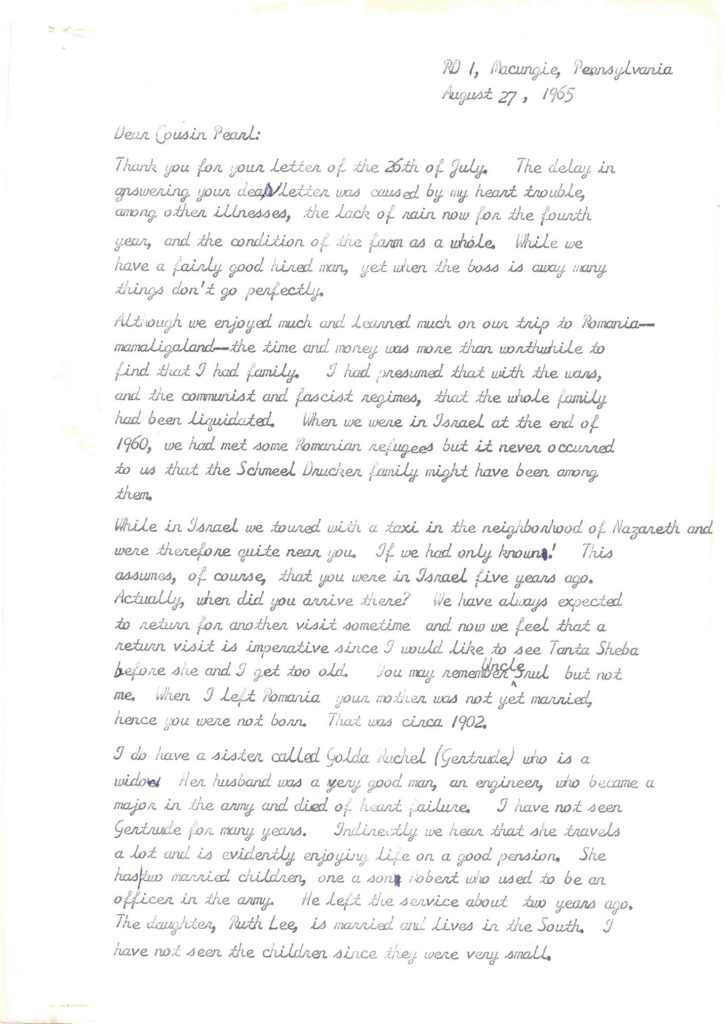 RD 1, Macungie, Pennsylvania
August 27, 1965
Dear Cousin Pearl:
Thank you for your letter of the 26th of July. The delay in
answering your dear letter was caused by my heart trouble,
among other illnesses, the lack of rain now for the fourth
year, and the condition of the farm as a whole. While we
have a fairly good hired man, yet when the boss is away many
things don't go perfectly.
Although we enjoyed much and learned much on our trip to Romania--
mamaligaland--the time and money was more than worthwhile to
find that I had family. I had presumed that with the wars,
and the communist and fascist regimes, that the whole family
had been liquidated. When we were in Israel at the end of
1960, we had met some Romanian refugees but it never occurred
to us that the Schmeel Drucker family might have been among
them.
While in Israel we toured with a taxi in the neighborhood of Nazareth and
were therefore quite near you. If we had only known! This
assumes, of course, that you were in Israel five years ago.
Actually, when did you arrive there? We have always expected
to return for another visit sometime and now we feel that a
return visit is imperative since I would like to see Tanta Sheba
before she and I get too old. You may remember Uncle Srul but not
me. When I left Romania your mother was not yet married,
hence you were not born. That was circa 1902.
I do have a sister called Golda Ruchel (Gertrude) who is a
widow Her husband was a very good man, an engineer, who became a
major in the army and died of heart failure. I have not seen
Gertrude for many years. Indirectly we hear that she travels
a lot and is evidently enjoying life on a good pension. She
has two married children, one a son Robert who used to be an
officer in the army. He left the service about two years ago.
The daughter, Ruth Lee, is married and lives in the South. I
have not seen the children since they were very small.